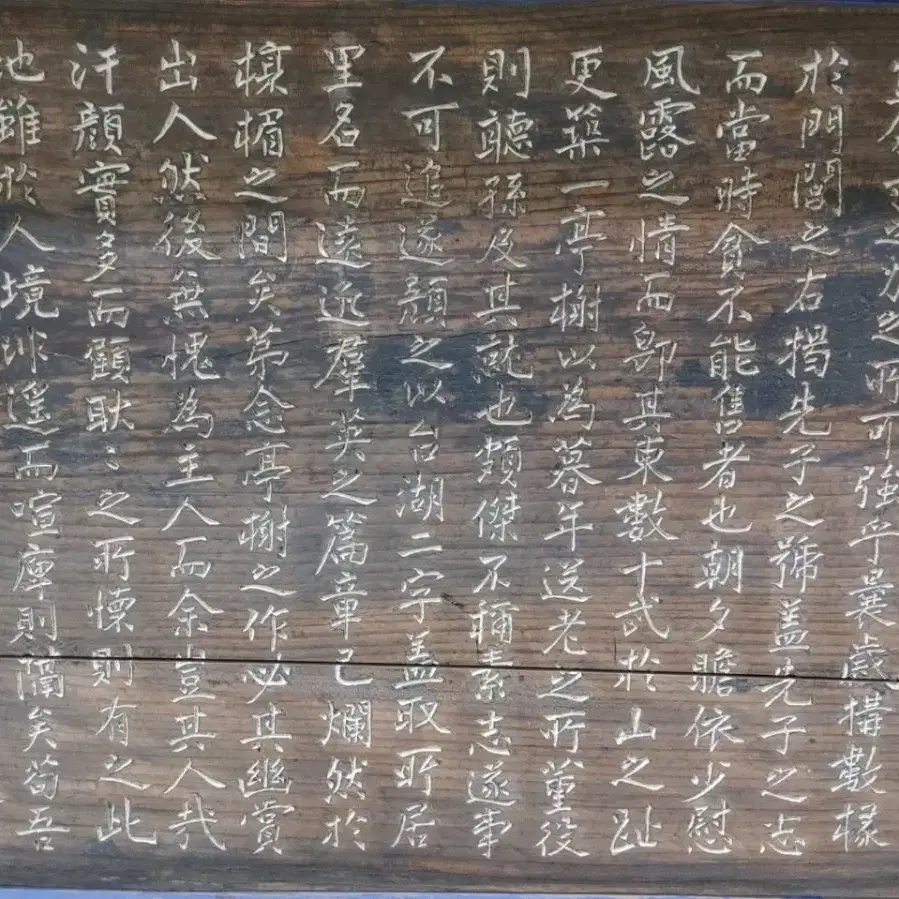 之力之所可強乎曩歲搆數椽
於門閭之右揭先子之號盖先子之志
而當時貧不能售者也朝夕瞻依少慰
風露之情而卽其東數十武於山之趾
更築一亭榭以為暮年送老之所董役
則聽孫及其就也頗傑不稱素志遂事
不可追遂顔之以台湖二字盖取所居
里名而遠迩羣英之篇章已爛然於
樑楣之間矣苐念亭榭之作必其幽賞
出人然後無愧為主人而余豈其人哉
汗顔實多而顧耿〻之所懐則有之此
地雖於人境非遥而喧塵則隔矣苟吾